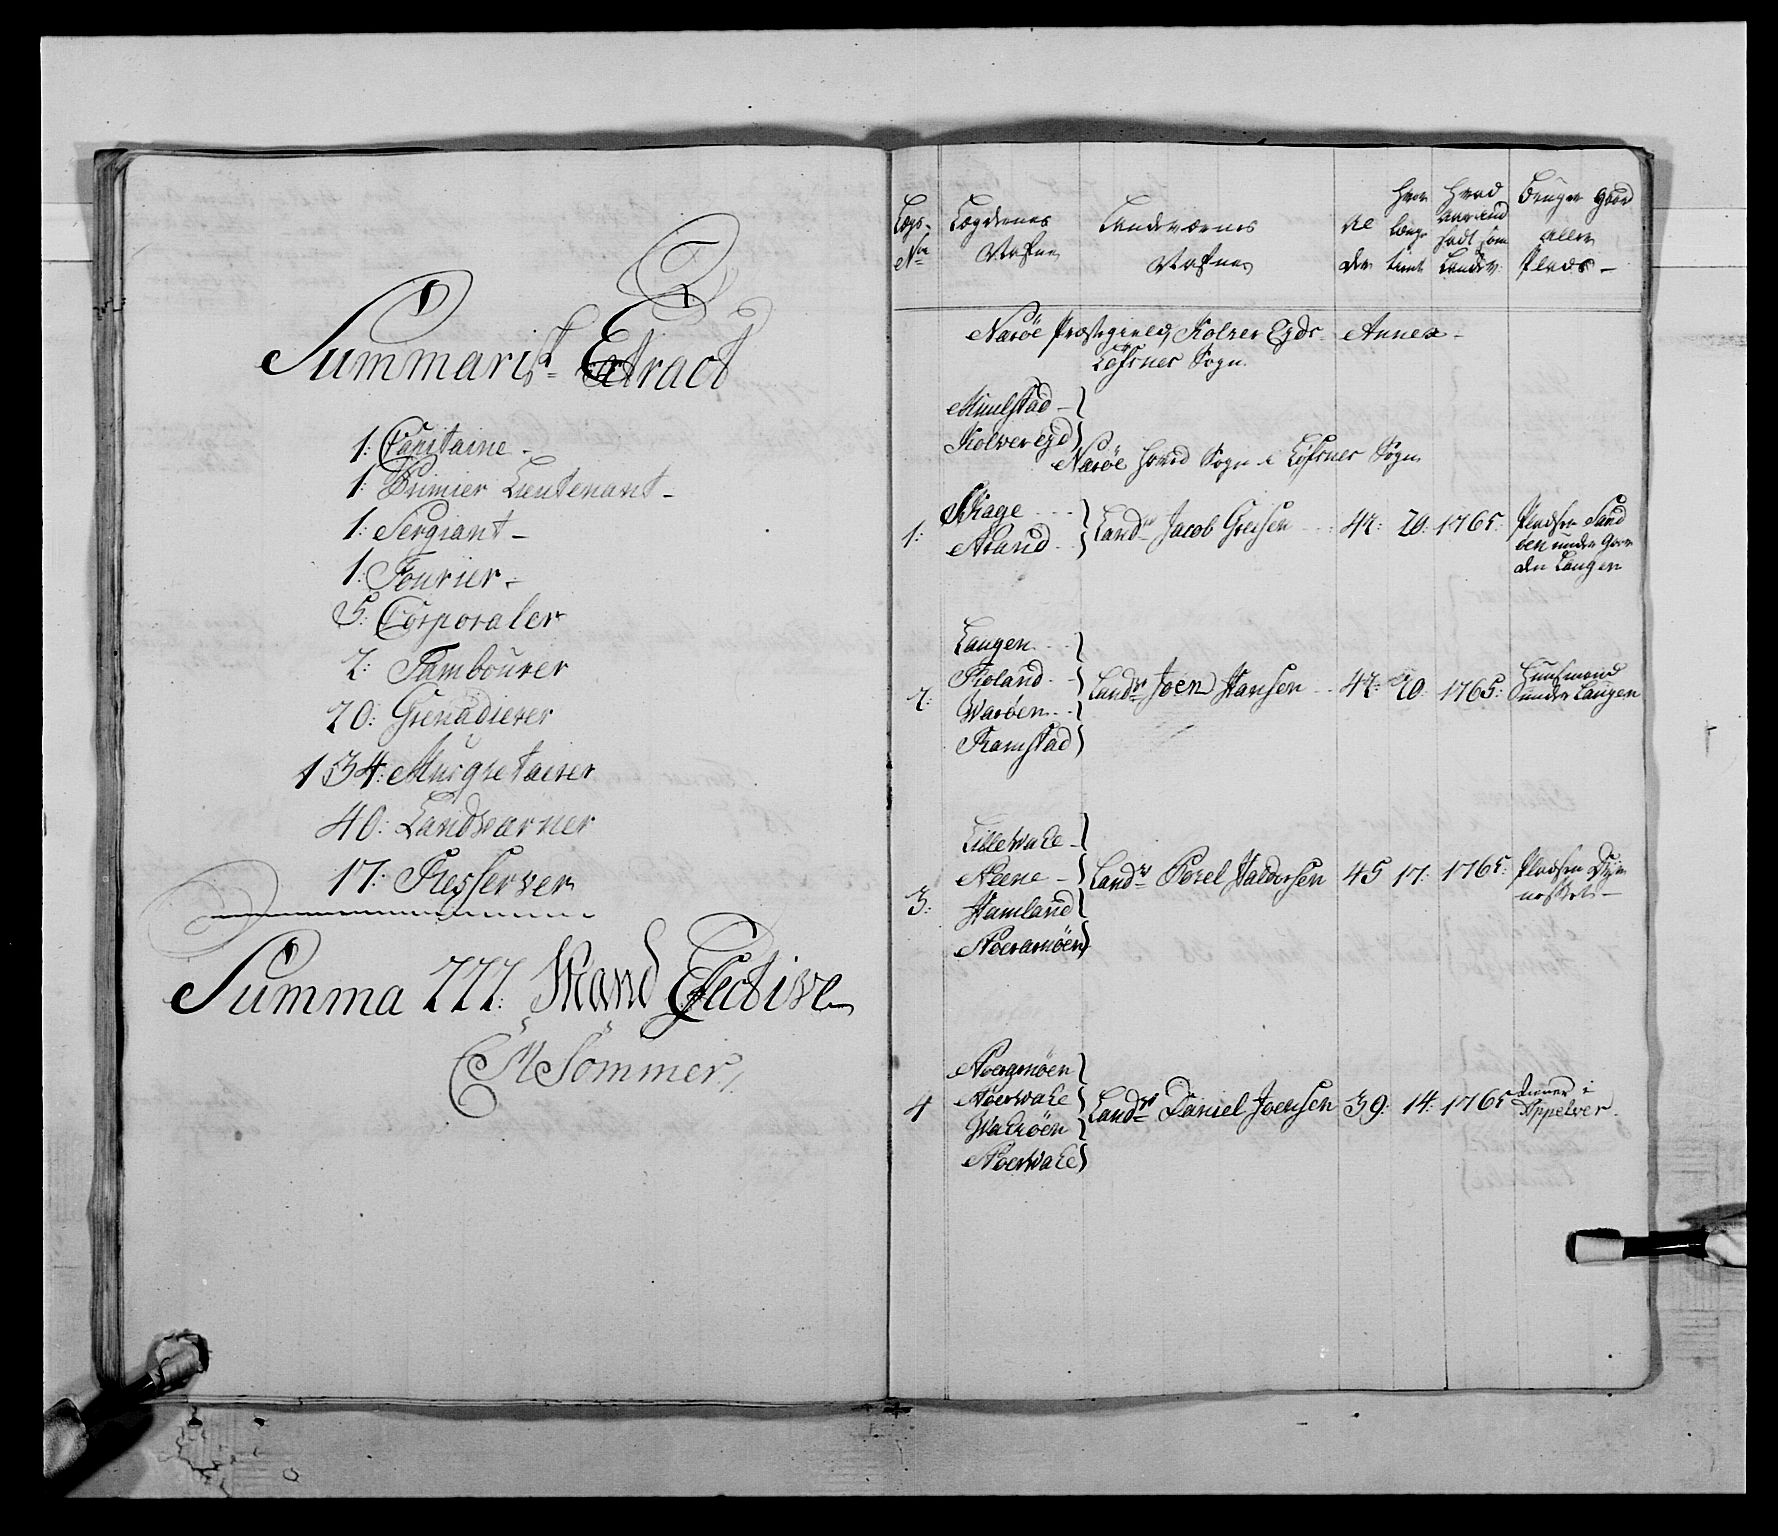 Summarisk Extract
1: Capitaine -
1: Primier Lieutenant -
1: Sergiant -
1: Fourier -
5: Corporaler
2: Tambourer
20: Grenadierer
134: Musqvetairer
40: Landværner
17: Resserver
Summa 222: Mand Efective
CM Sommer
Lægs- No
Lægdernes Nafne
Landværnes Nafne
Al der
hvor længe tient
Hvad aar and sadt som Landv:
Bruger Gaard aller Plads -
Naröe Præstegield, Kolver Egds Annex -
Löfsnes Sogn.
Muulstad -
Kolvereyd
Naröe Hoved Sogn i Löfsnes Sogn
1: Skage
Strand
Landn Jacob Greisen 42: 20: 1765: Pladsen Sand
ben under Gaar
den Langen
Langen
2: Fioland
Waröen
Ramstad
Landn Joen Hansen 42: 20: 1765: Huusmand
under Langen
Lille Wale
3: Neene -
Hamland
Noeramöen
Landn Porel Haldersen 45 17: 1765: Pladsen
Noergmöen
4 Nöerwale
Walröen
Noerwale
Landn Daniel Joensen 39: 14: 1765 tiener i
Appelver.